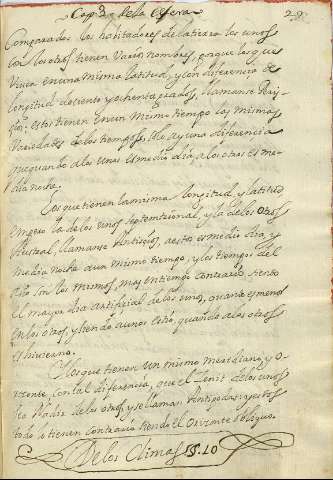 Cap. 2. de la esfera 29
Comparados los habitadores de la tierra los unos
con los otros tienen varios nombres, porque los que
viven en una misma latitud, y con diferencia de
longitud de ciento y ochenta grados, llamanse
estos tienen en un mismo tiempo las mismas
variedades de los tiempos. Solo ay una diferencia
que quando a los unos es medio dia, a los otros es me-
dia noche.
Los que tienen la misma longitud, y latitud
la de los unos septentrional, y la de los otros
Austral, llamanse Antecios, a estos es medio dia y
media noche a un mismo tiempo, y los tiempos del
año son los mismos, mas en tiempo contrario siendo
el mayor dia artificial de los unos, quando es menor
en los otros, y siendo a unos estio, quando a los otros
es hivierno.
Los que tienen un mismo meridiano, y O-
rizonte con tal diferencia, que el Zenit de los unos
es Nadir de los otros, se llaman Antipodas, y estos
todo lo tienen contrario siendo el Orizonte obliquo.
De los Climas §. 10